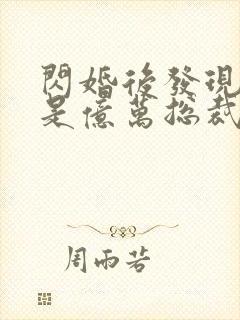 閃婚後發現
是億萬總裁
周雨若